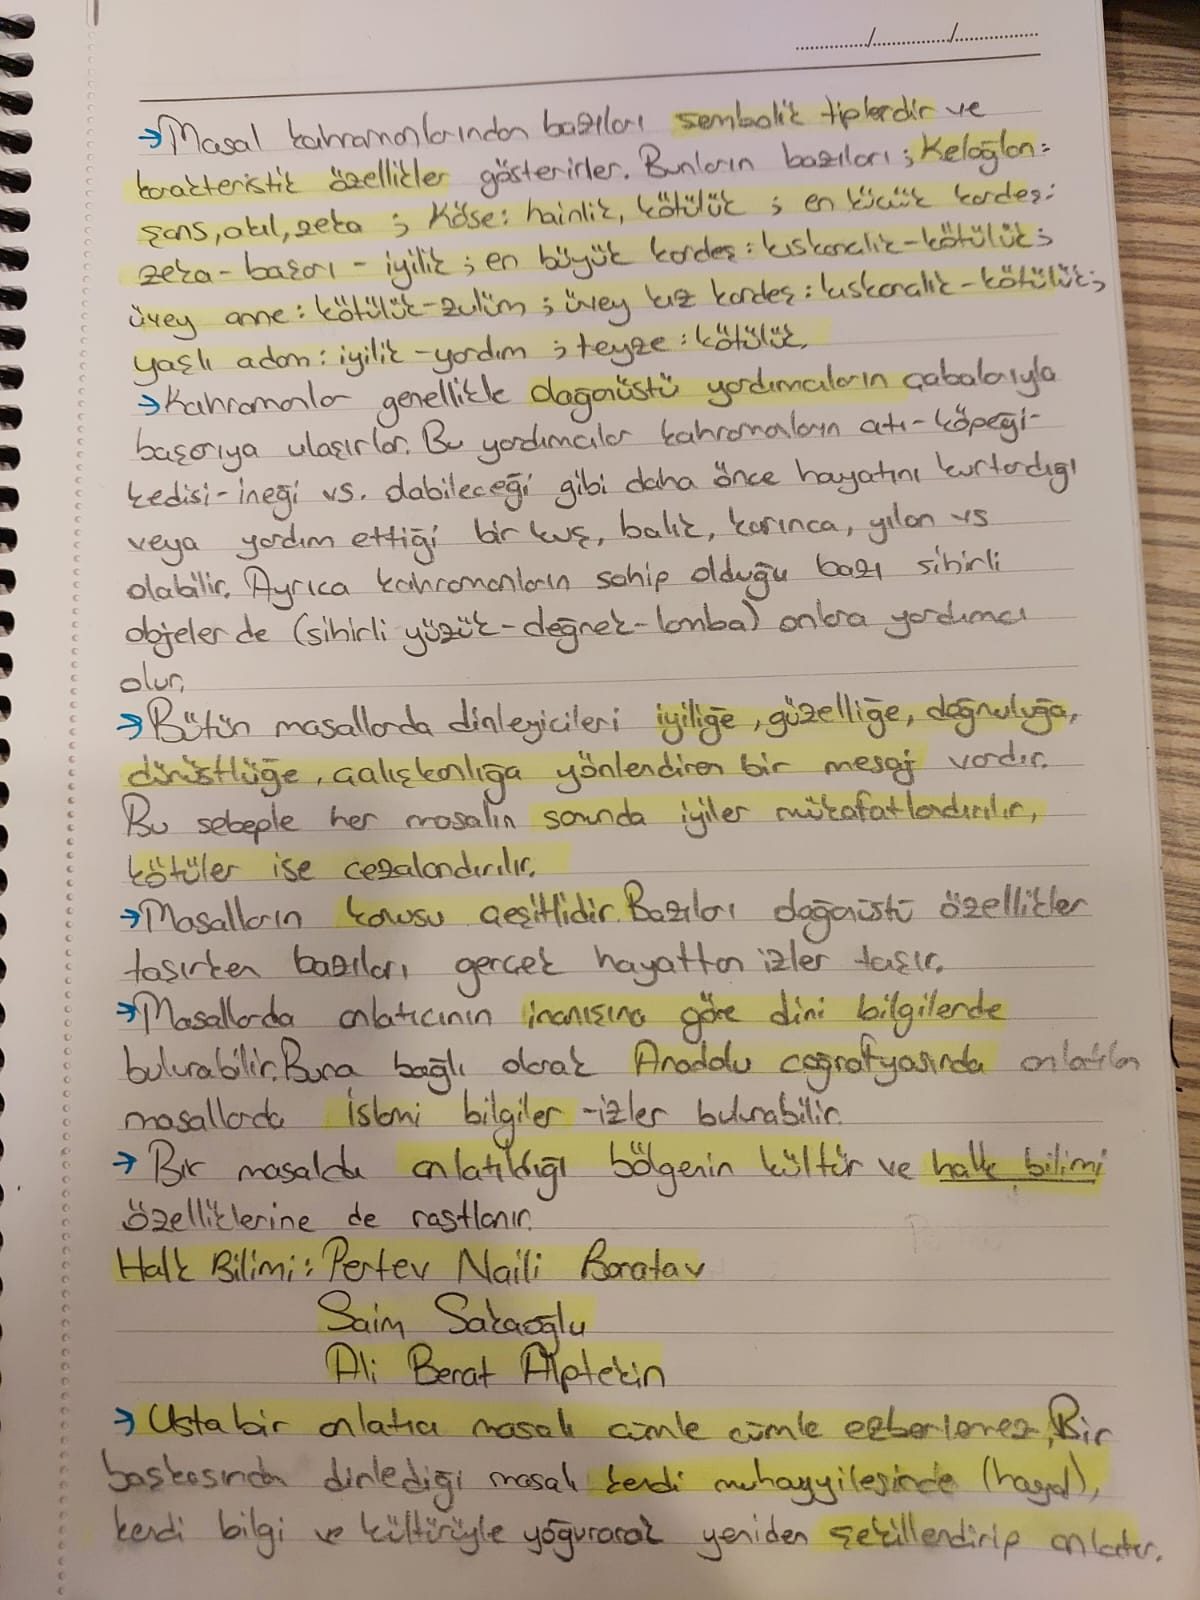 ............../............../..............
→Masal kahramanlarından bazıları sembolik tiplerdir ve
karakteristik özellikler gösterirler. Bunların bazıları; Keloğlan:
şans, akıl, zeka ; Köse: hainlik, kötülük ; en küçük kardeş:
zeka-başarı-iyilik ; en büyük kardeş: kıskançlık-kötülük ;
üvey anne: kötülük-zulüm ; üvey kız kardeş: kıskançlık-kötülük ;
yaşlı adam: iyilik-yardım ; teyze: kötülük.
→Kahramanlar genellikle doğaüstü yardımcıların çabalarıyla
başarıya ulaşırlar. Bu yardımcılar kahramanların atı-köpeği-
kedisi-ineği vs. olabileceği gibi daha önce hayatını kurtardığı
veya yardım ettiği bir kuş, balık, karınca, yılan vs
olabilir. Ayrıca kahramanların sahip olduğu bazı sihirli
objeler de (sihirli yüzük-değnek-lamba) onlara yardımcı
olur.
→Bütün masallarda dinleyicileri iyiliğe, güzelliğe, doğruluğa,
dürüstlüğe, çalışkanlığa yönlendiren bir mesaj vardır.
Bu sebeple her masalın sonunda iyiler mükafatlandırılır,
kötüler ise cezalandırılır.
→Masalların konusu çeşitlidir. Bazıları doğaüstü özellikler
taşırken bazıları gerçek hayattan izler taşır.
→Masallarda anlatıcının inanışına göre dini bilgilerde
bulunabilir. Buna bağlı olarak Anadolu coğrafyasında anlatılan
masallarda İslami bilgiler-izler bulunabilir.
→Bir masalda anlatıldığı bölgenin kültür ve halk bilimi
özelliklerine de rastlanır.
Halk Bilimi: Pertev Naili Boratav
Saim Sakaoğlu
Ali Berat Alptekin
→Usta bir anlatıcı masalı cümle cümle ezberlemez, Bir
başkasından dinlediği masalı kendi muhayyilesinde (hayal),
kendi bilgi ve kültürüyle yoğurarak yeniden şekillendirip anlatır.